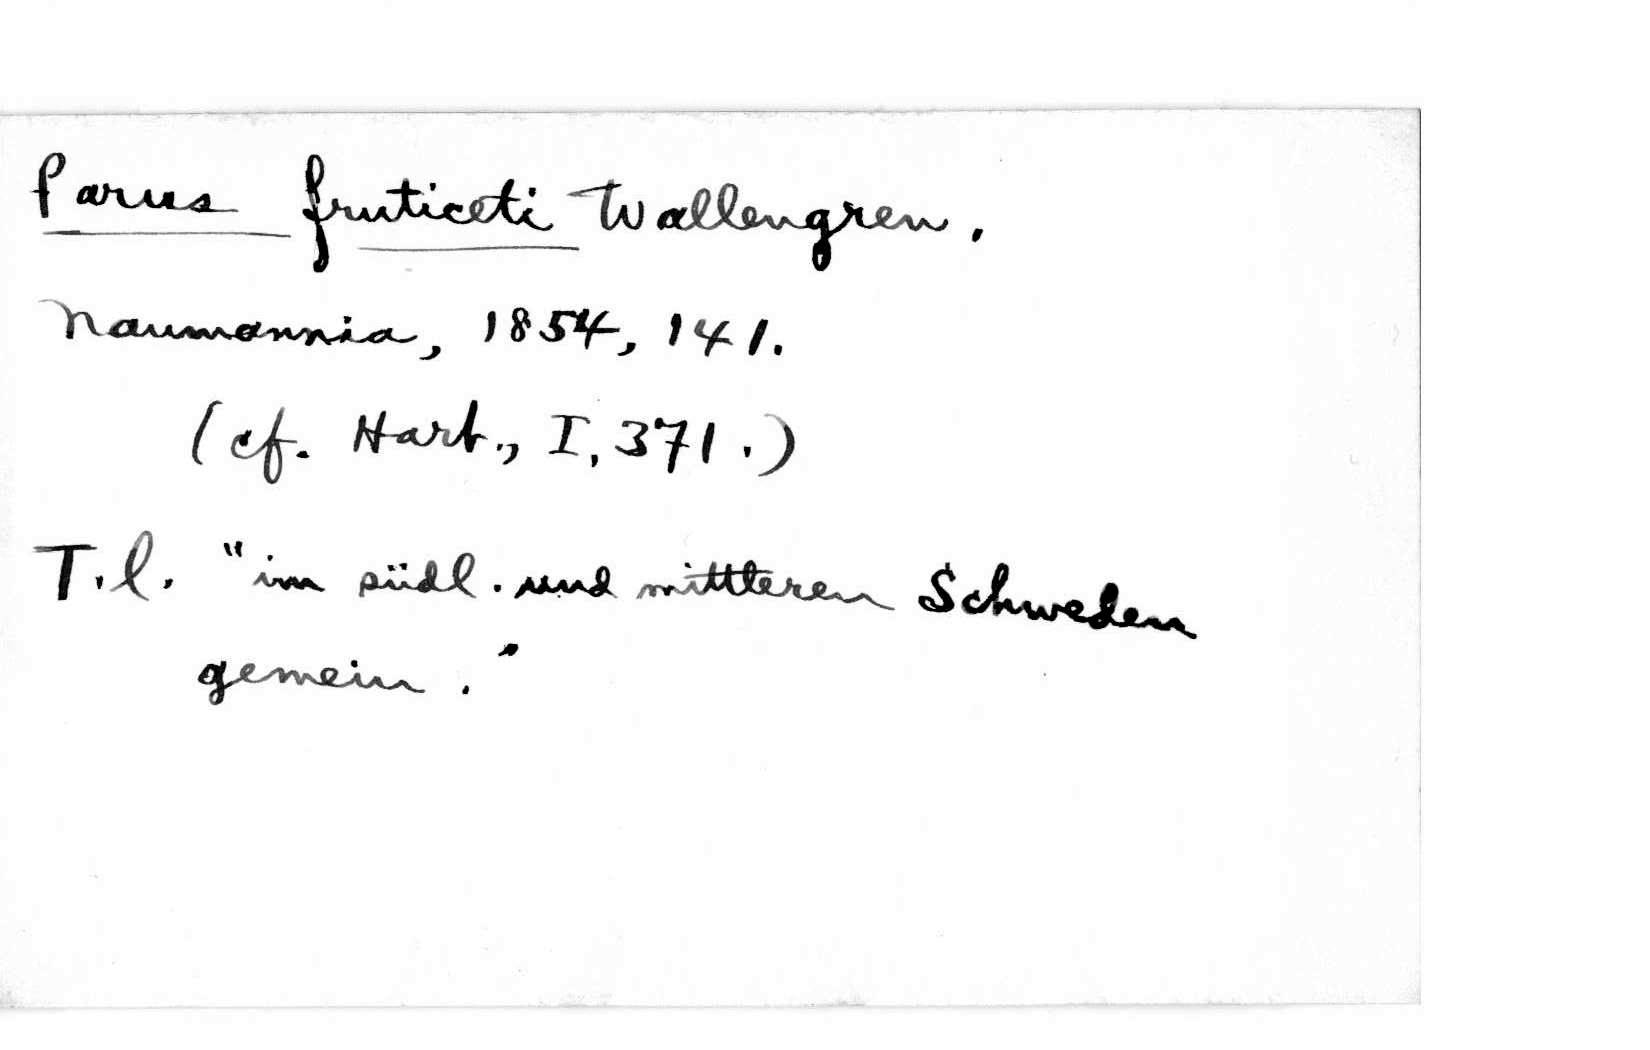 Parus fruticeti Wallengren.
Naumannia, 1854, 141.
(cf. Hart., I, 371.)
T.l. "im südl. und mittleren Schweden
gemein."